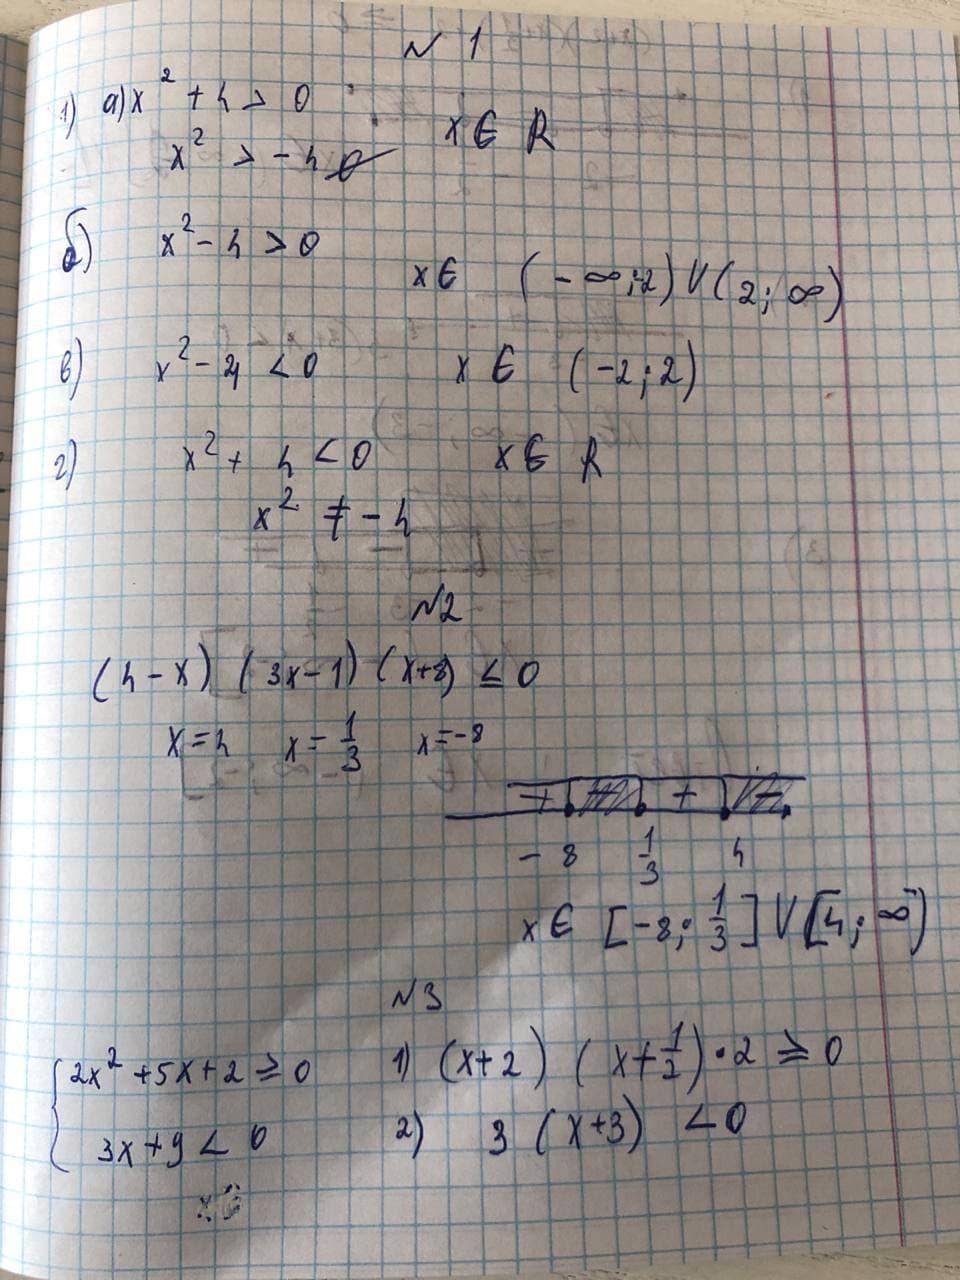 N 1
1) а) x² + 4 > 0
x² > -4
x ∈ R
б) x² - 4 > 0
x ∈ (-∞; -2) ∪ (2; ∞)
в) x² - 4 < 0 x ∈ (-2; 2)
г) x² + 4 < 0 x ∈ R
x² ≠ -4
N2
(4 - x) (3x - 1) (x + 8) ≤ 0
x = 4 x = 1/3 x = -8
+ + -
-8 1/3 4
x ∈ [-8; 1/3] ∪ [4; ∞)
N3
{ 2x² + 5x + 2 ≥ 0 1) (x + 2) (x + 1/2) · 2 ≥ 0
3x + 9 < 0 2) 3 (x + 3) < 0